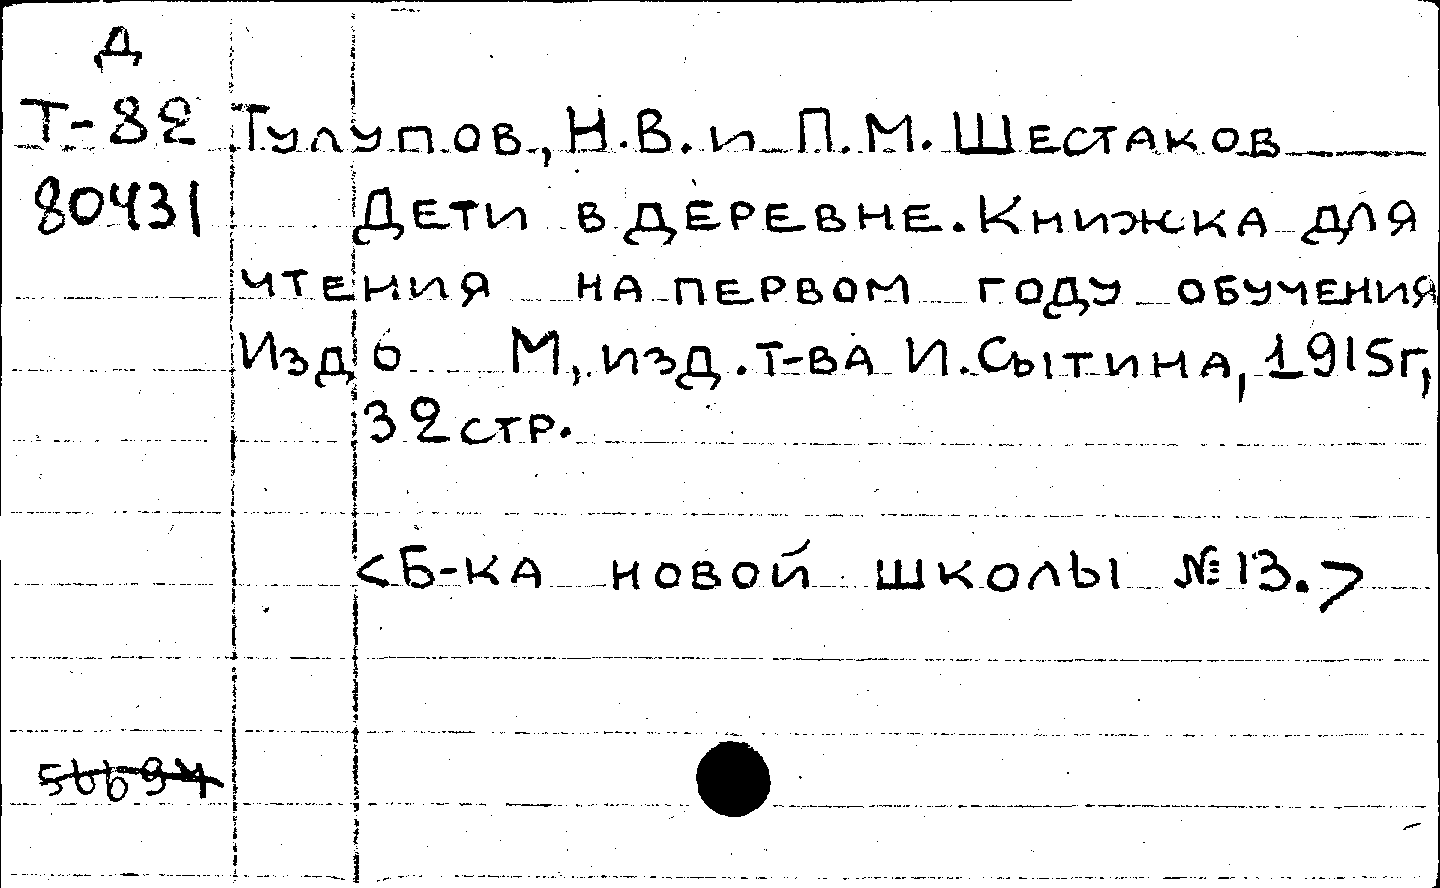 Д
Т-82 Тулупов, Н.В. и П.М. Шестаков
80431 Дети в деревне. Книжка для
чтения на первом году обучения
Изд 6 М, изд. т-ва И. Сытина, 1915г,
32 стр.
<Б-ка новой школы №13.>
56694